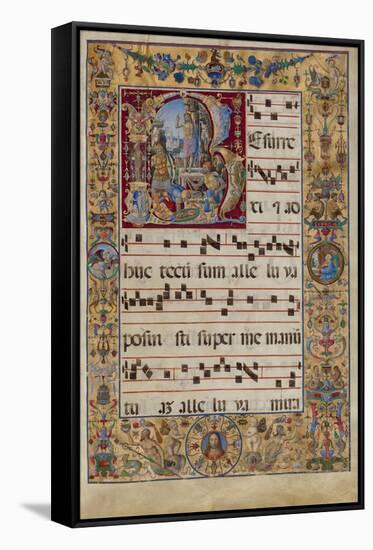 Resurre
xi ⁊ ad
huc tecū sum alle lu ya
posui sti super me manū
tu aʒ alle lu ya mira